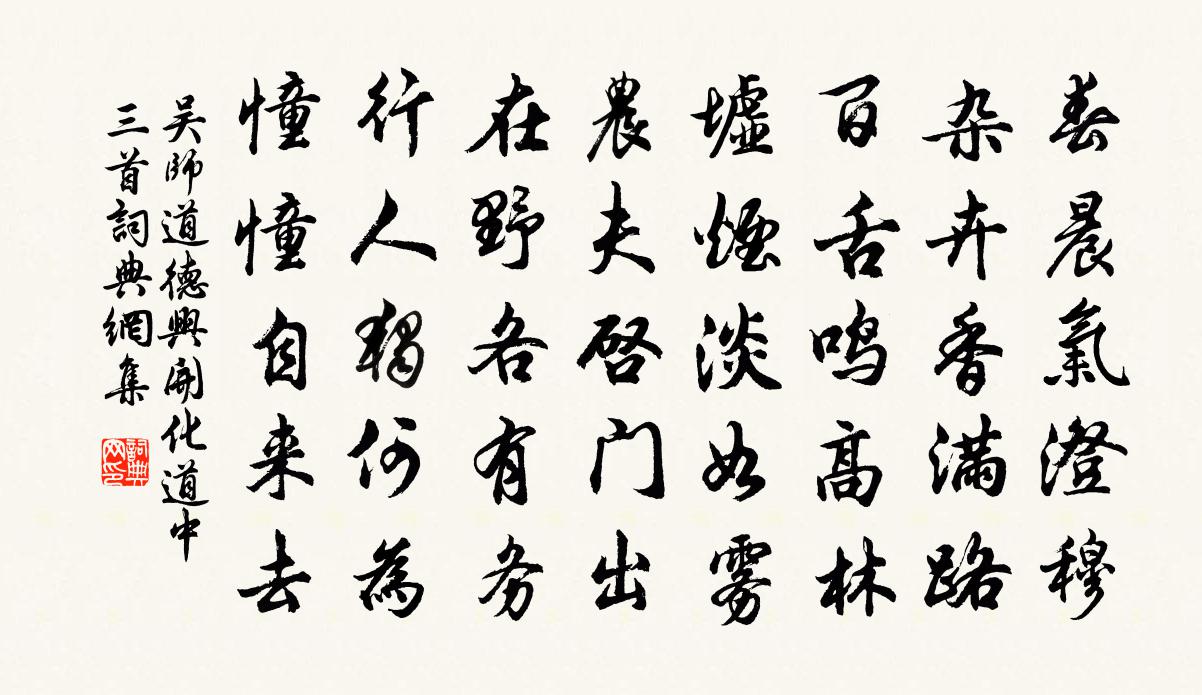 春晨氣澄穆
杂卉香滿路
百舌鸣高林
墟煙淡如雾
農夫啓门出
在野各有务
行人獨何為
憧憧自来去
吴師道德興開化道中
三首詞典網集
詞典网印